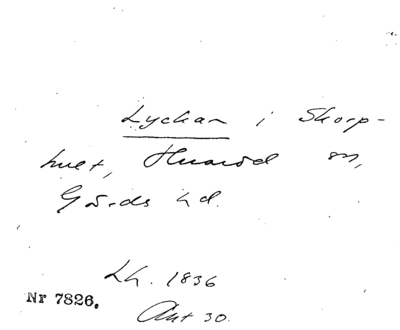 Lyckan i Skorp-
hult, Huaröd sn,
Gärds hd.
Lh. 1836
Nr 7826.
Akt 30.